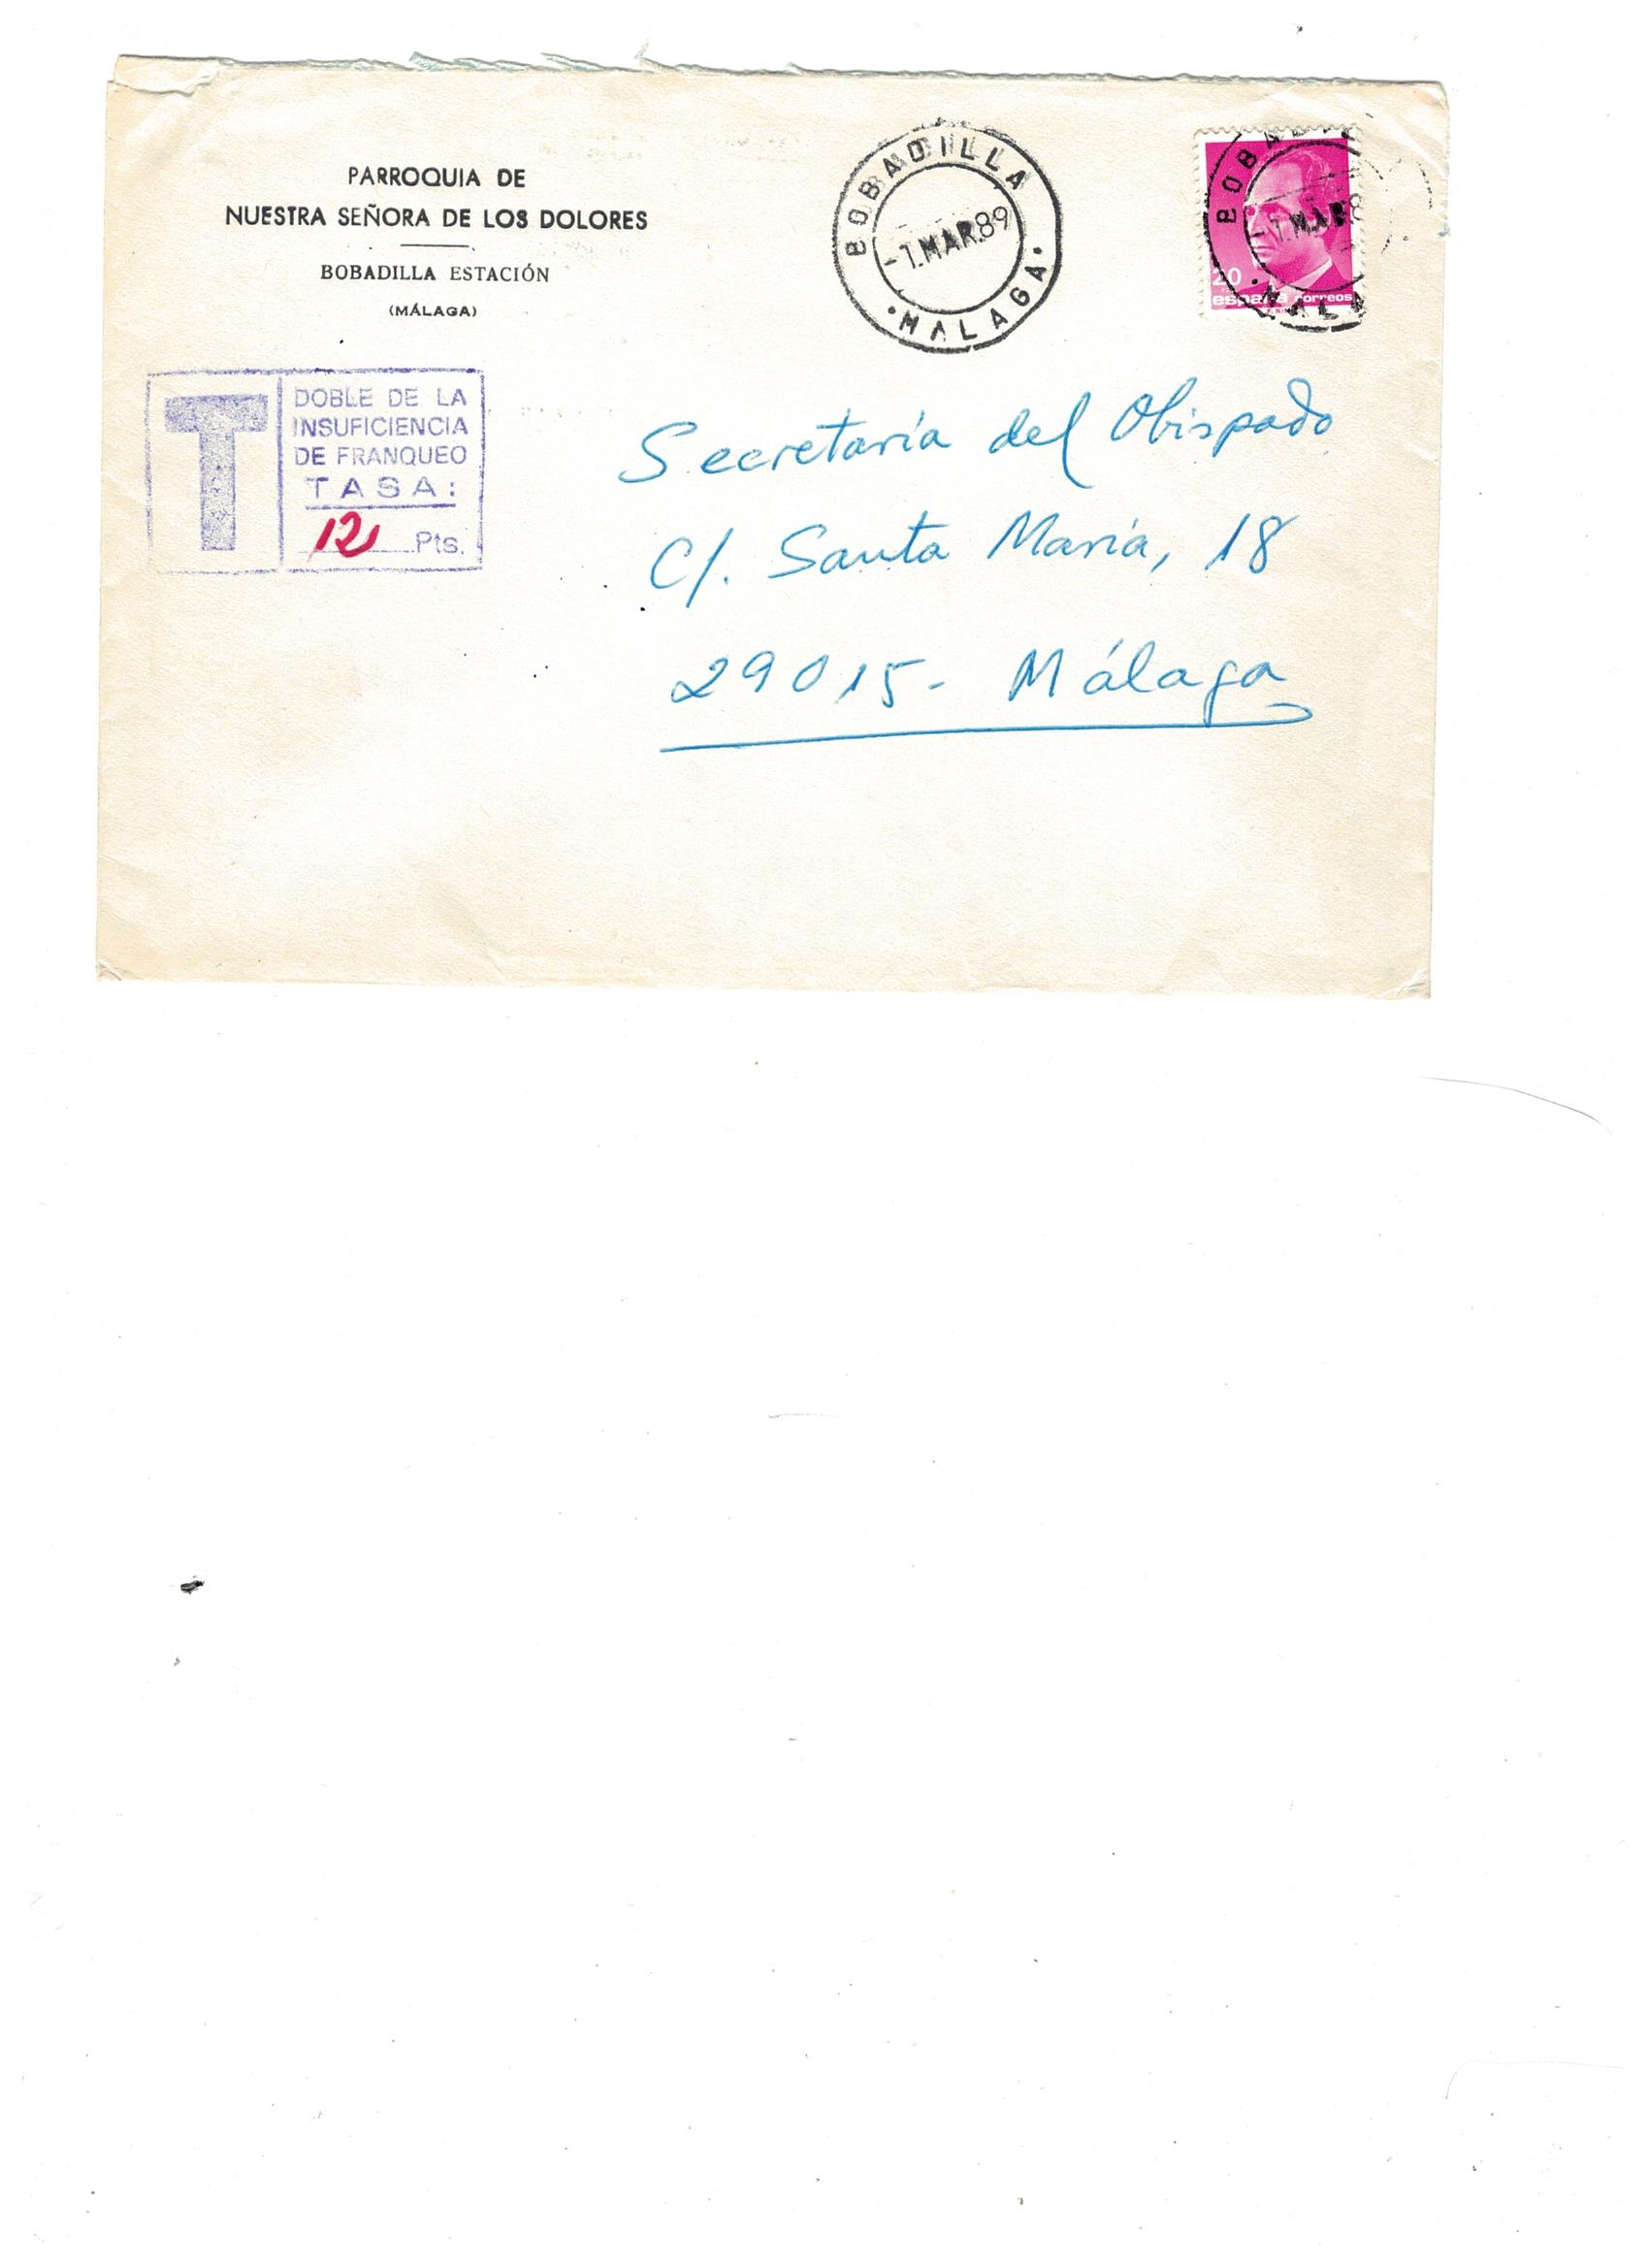 PARROQUIA DE
NUESTRA SEÑORA DE LOS DOLORES
BOBADILLA ESTACIÓN
(MÁLAGA)
BOBADILLA
-1.MAR.89
·MALAGA·
BOBA
-1.MAR.8
·MALA
20
españa correos
T
DOBLE DE LA
INSUFICIENCIA
DE FRANQUEO
TASA:
12 Pts.
Secretaría del Obispado
C/. Santa María, 18
29015- Málaga